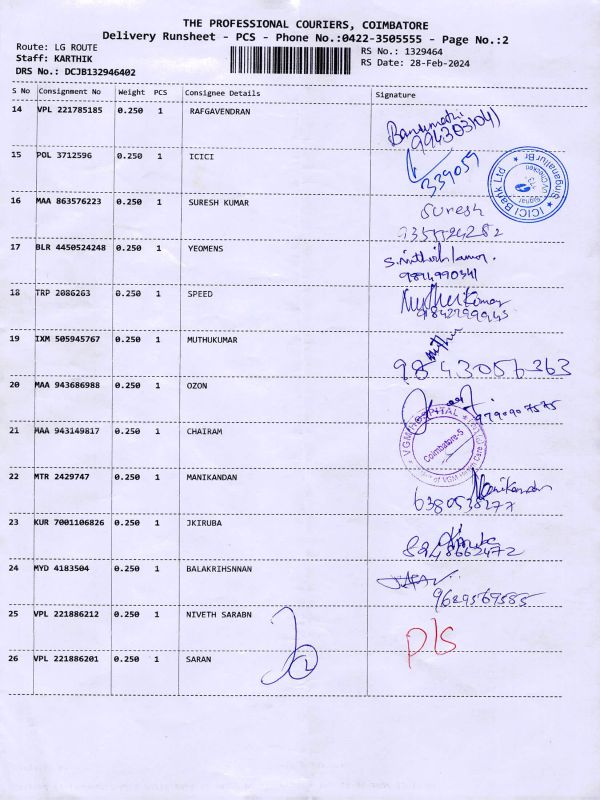 THE PROFESSIONAL COURIERS, COIMBATORE
Delivery Runsheet - PCS - Phone No.:0422-3505555 - Page No.:2
Route: LG ROUTE
Staff: KARTHIK
DRS No.: DCJB132946402
RS No.: 1329464
RS Date: 28-Feb-2024
S No Consignment No Weight PCS Consignee Details Signature
14 VPL 221785185 0.250 1 RAFGAVENDRAN
Banumathi
9943031041
15 POL 3712596 0.250 1 ICICI
339059
ICICI Bank Ltd
16 MAA 863576223 0.250 1 SURESH KUMAR
Suresh
17 BLR 4450524248 0.250 1 YEOMENS
9894990341
18 TRP 2086263 0.250 1 SPEED
Muthukumar
19 IXM 505945767 0.250 1 MUTHUKUMAR
Muthu
9843056363
20 MAA 943686988 0.250 1 OZON
9790907575
21 MAA 943149817 0.250 1 CHAIRAM
VGM HOSPITAL
Coimbatore-5
22 MTR 2429747 0.250 1 MANIKANDAN
Manikandan
6380538277
23 KUR 7001106826 0.250 1 JKIRUBA
8248662472
24 MYD 4183504 0.250 1 BALAKRIHSNNAN
9629567585
25 VPL 221886212 0.250 1 NIVETH SARABN
P/S
26 VPL 221886201 0.250 1 SARAN